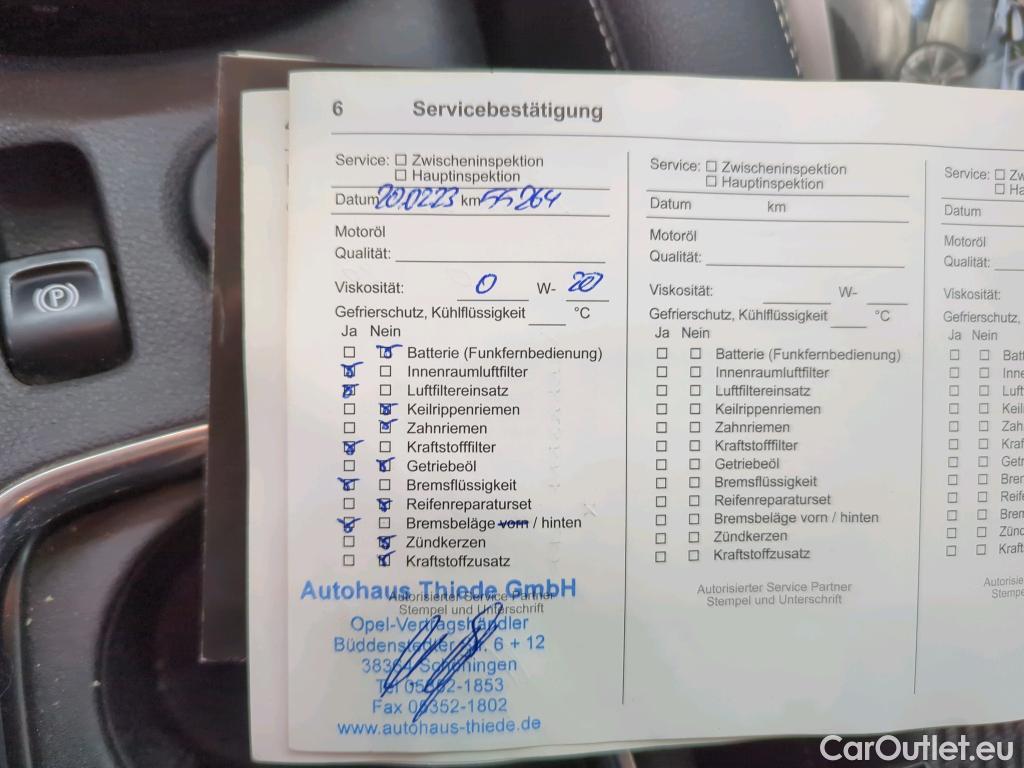 6 Servicebestätigung
Service: ☐ Zwischeninspektion
☐ Hauptinspektion
Datum 20.02.23 km 55264
Motoröl
Qualität:
Viskosität: 0 W- 20
Gefrierschutz, Kühlflüssigkeit °C
Ja Nein
☐ ☒ Batterie (Funkfernbedienung)
☒ ☐ Innenraumluftfilter
☒ ☐ Luftfiltereinsatz
☐ ☒ Keilrippenriemen
☐ ☒ Zahnriemen
☒ ☐ Kraftstofffilter
☐ ☒ Getriebeöl
☒ ☐ Bremsflüssigkeit
☐ ☒ Reifenreparaturset
☒ ☐ Bremsbeläge vorn / hinten
☐ ☒ Zündkerzen
☐ ☒ Kraftstoffzusatz
Autohaus Thiede GmbH
Autorisierter Service Partner
Stempel und Unterschrift
Opel-Vertragshändler
Büddenstedter Str. 6 + 12
Schöningen
Tel 05352-1853
Fax 05352-1802
www.autohaus-thiede.de
Service: ☐ Zwischeninspektion
☐ Hauptinspektion
Datum km
Motoröl
Qualität:
Viskosität: W-
Gefrierschutz, Kühlflüssigkeit °C
Ja Nein
☐ ☐ Batterie (Funkfernbedienung)
☐ ☐ Innenraumluftfilter
☐ ☐ Luftfiltereinsatz
☐ ☐ Keilrippenriemen
☐ ☐ Zahnriemen
☐ ☐ Kraftstofffilter
☐ ☐ Getriebeöl
☐ ☐ Bremsflüssigkeit
☐ ☐ Reifenreparaturset
☐ ☐ Bremsbeläge vorn / hinten
☐ ☐ Zündkerzen
☐ ☐ Kraftstoffzusatz
Autorisierter Service Partner
Stempel und Unterschrift
Service: ☐ Zw
☐ Ha
Datum
Motoröl
Qualität:
Viskosität:
Gefrierschutz,
Ja Nein
☐ ☐ Batt
☐ ☐ Inne
☐ ☐ Luft
☐ ☐ Keil
☐ ☐ Zah
☐ ☐ Kraft
☐ ☐ Getr
☐ ☐ Brem
☐ ☐ Reife
☐ ☐ Brem
☐ ☐ Zünd
☐ ☐ Kraft
Autorisie
Ste
P
CarOutlet.eu